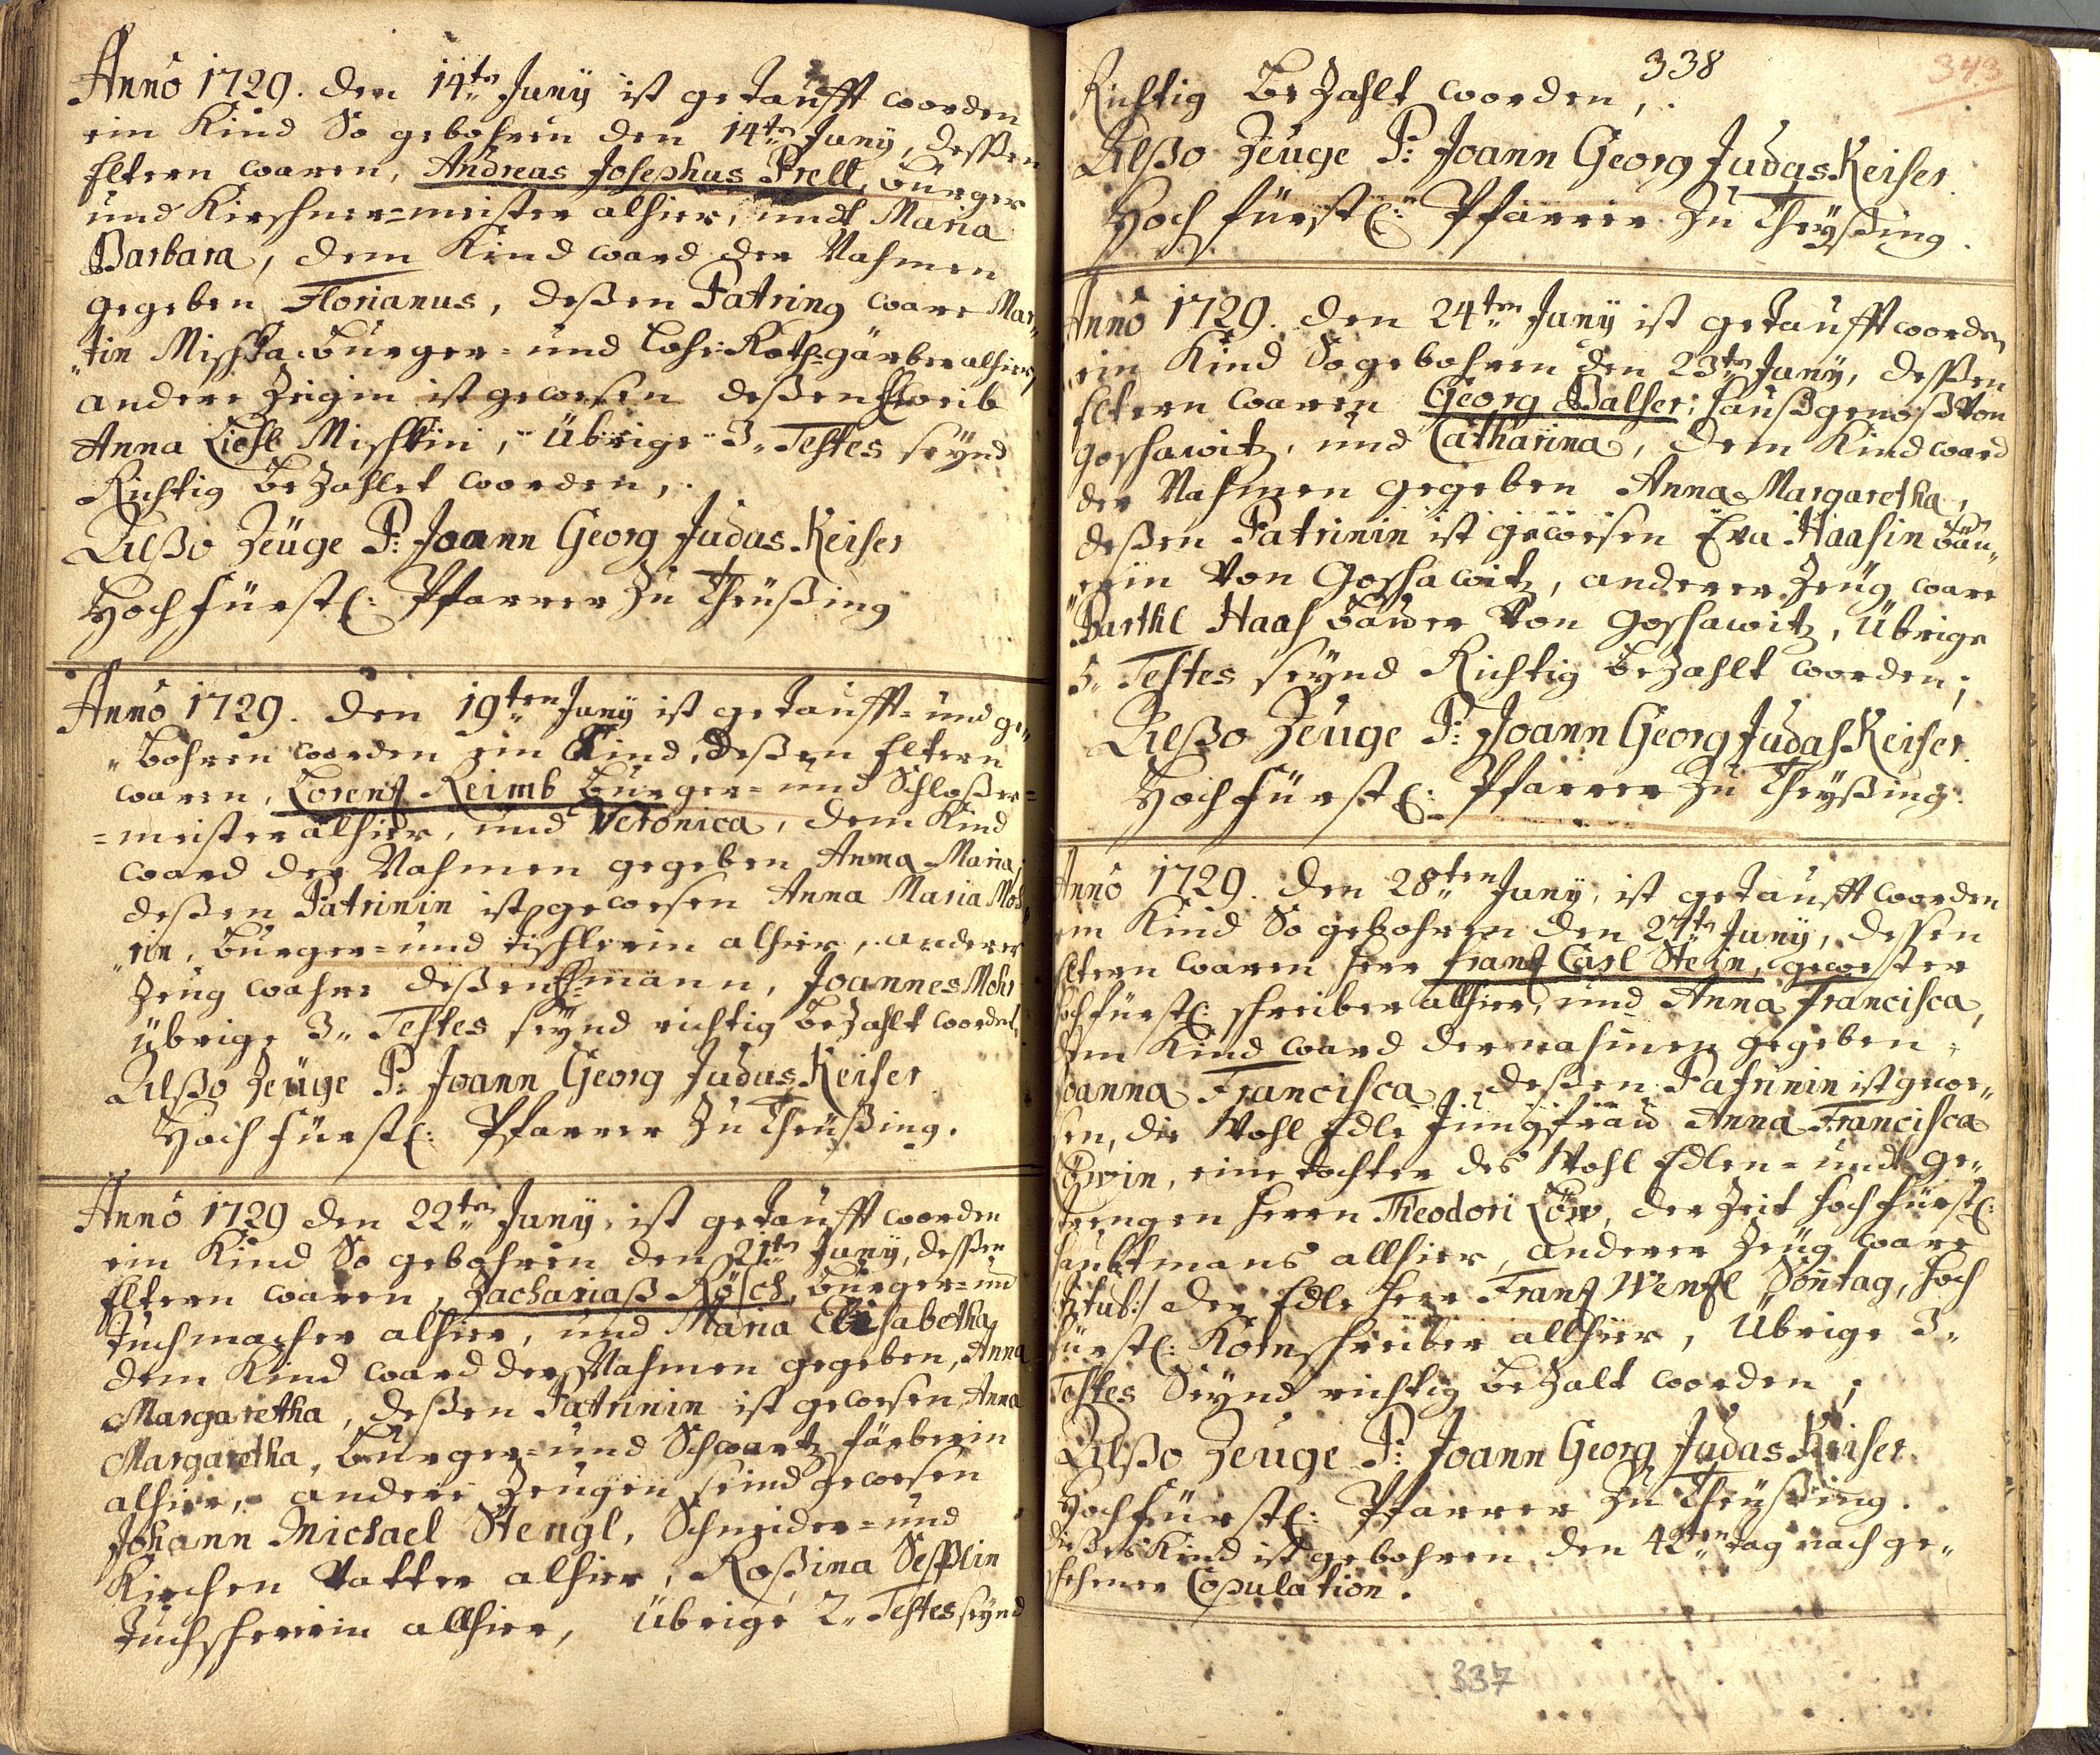 Anno 1729. den 14ten Juny ist getaufft worden
ein Kind So gebohren den 14ten Juny, dessen
Eltern waren, Andreas Josephus Prell, burger
und Kirschner=meister alhier, undt Maria
Barbara, dem Kind ward der Nahmen
gegeben Florianus, deßen Patring ware Mar„
„tin Mischka burger= und Loh: Roth=gärber alhier,
andere Zeigin ist gewesen deßen Eheweib
Anna Liesl Mischkin, Übrige 3„ Testes seynd
Richtig beZahlet worden,
Alßo Zeüge P: Joann Georg Judas Keiser
Hochfürstl: Pfarrer Zu Theüßing
Anno 1729. den 19ten Juny ist getaufft= und ge„
„bohren worden ein Kind, deßen Eltern
waren, Lorentz Reimb burger= und Schloßer=
=meister alhier, und Veronica, dem Kind
ward der Nahmen gegeben Anna Maria,
deßen Patrinin ist gewesen Anna Maria Moh„
„rin, burger= und tischlerin alhier, anderer
Zeug wahre deßen Ehmann, Joannes Mohr
übrige 3„ Testes seynd richtig beZahlt worden,
Alßo Zeüge P: Joann Georg Judas Keiser
Hochfürstl: Pfarrer Zu Theüßing.
Anno 1729 den 22ten Juny, ist getaufft worden
ein Kind So gebohren den 21ten Juny, deßen
Eltern waren, Zachariaß Rösch, burger= und
Tuchmacher alhier, und Maria Elisabetha,
dem Kind ward der Nahmen gegeben, Anna
Margaretha, deßen Patrinin ist gewesen Anna
Margaretha, burger= und Schwartz färberin
alhier, andere Zeugen seind gewesen
Johann Michael Stengl, Schneider= und
Kirchen Vatter alhier, Roßina Sepplin
Tuchschererin allhier, Übrige 2„ Testes seynd
338
343
Richtig beZahlt worden,
Alßo Zeuge P: Joann Georg Judas Keiser.
Hochfürstl: Pfarrer Zu Theyßing.
Anno 1729. den 24ten Juny ist getaufft worden
ein Kind So gebohren den 23ten Juny, deßen
Eltern waren Georg Balser, haußgenoß Von
Goschawitz, und Catharina, dem Kind ward
der Nahmen gegeben Anna Margaretha,
deßen Patrinin ist gewesen Eva Haasin bäu„
„erin Von Goschawitz, anderer Zeug ware
Barthl Haas bauer Von Goschawitz, Übrige
3„ Testes seynd Richtig beZahlt worden;
Alßo Zeuge P: Joann Georg Judas Keiser.
Hochfürstl: Pfarrer Zu Theyßing.
Anno 1729. den 28ten Juny, ist getaufft worden
ein Kind So gebohren den 27ten Juny, dessen
Eltern waren Herr Frantz Carl Stein, gewester
hochfürstl: schreiber allhier, und Anna Francisca,
dem Kind ward der nahmen gegeben,
Joanna Francisca, deßen Patrinin ist gewe„
sen, die Wohl Edle Jungfrau Anna Francisca
Löwin, eine tochter des Wohl Edlen= undt ge„
strengen Herrn Theodori Löw, der Zeit hochfürstl:
haubtmans allhier, anderer Zeug ware
/:titul:/ der Edle Herr Frantz Wentzl Sontag, hoch
fürstl: Kornschreiber allhier, Übrige 3„
Testes Seynd richtig beZalt worden;
Alßo Zeuge P: Joann Georg Judas Keiser.
Hochfürstl: Pfarrer Zu Theyßing.
dießes Kind ist gebohren den 42ten tag nach ge„
schehener Copulation.
337